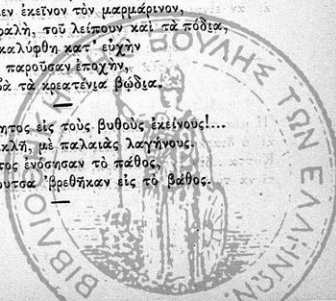 εν ἐκεῖνον τὸν μαρμάρινον,
φαλὴ, τοῦ λείπουν καὶ τὰ πόδια,
καλύφθη κατ' εὐχὴν
παροῦσαν ἐποχὴν,
ὰ τὰ κρεατένια βῴδια.
ητος εἰς τοὺς βυθοὺς ἐκείνους!...
κλῆ, μὲ παλαιὰς λαγήνους.
τος ἐνόσησαν τὸ πάθος,
ουτσα 'βρεθῆκαν εἰς τὸ βάθος.
ΒΙΒΛΙΟ ΒΟΥΛΗΣ ΤΩΝ ΕΛΛΗΝΩΝ